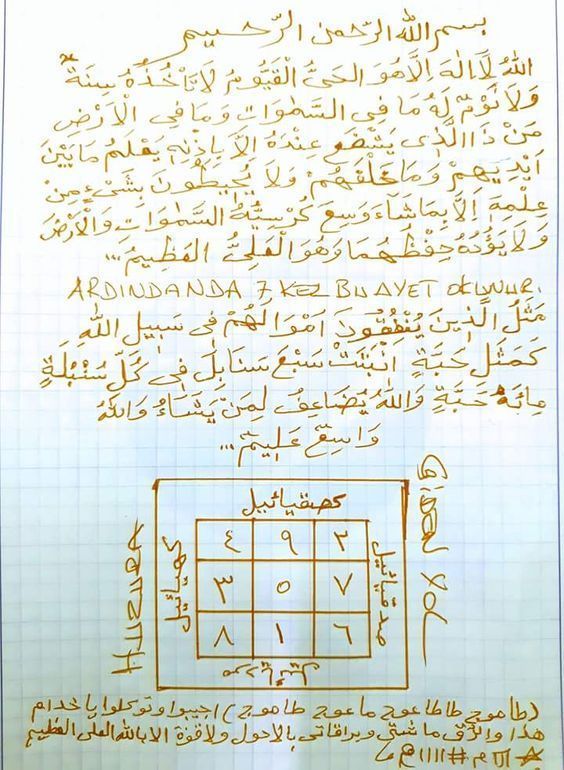 بسم الله الرّحمن الرّحيم
اَللهُ لَا اِلٰهَ اِلَّا هُوَ الْحَيُّ الْقَيُّومُ لَا تَأْخُذُهُ سِنَةٌ
وَلَا نَوْمٌ لَهُ مَا فِي السَّمٰوَاتِ وَمَا فِي الْاَرْضِ
مَنْ ذَا الَّذٖي يَشْفَعُ عِنْدَهُ اِلَّا بِاِذْنِهٖ يَعْلَمُ مَا بَيْنَ
اَيْدِيهِمْ وَمَا خَلْفَهُمْ وَلَا يُحِيطُونَ بِشَيْءٍ مِنْ
عِلْمِهٖ اِلَّا بِمَا شَاءَ وَسِعَ كُرْسِيُّهُ السَّمٰوَاتِ وَالْاَرْضَ
وَلَا يَؤُدُهُ حِفْظُهُمَا وَهُوَ الْعَلِيُّ الْعَظِيمُ...
ARDINDANDA 7 KEZ BU AYET OKUNUR.
مَثَلُ الَّذِينَ يُنْفِقُونَ اَمْوَالَهُمْ فِي سَبِيلِ اللهِ
كَمَثَلِ حَبَّةٍ اَنْبَتَتْ سَبْعَ سَنَابِلَ فِي كُلِّ سُنْبُلَةٍ
مِائَةُ حَبَّةٍ وَاللهُ يُضَاعِفُ لِمَنْ يَشَاءُ وَاللهُ
وَاسِعٌ عَلِيمٌ...
٤ ٩ ٢
٣ ٥ ٧
٨ ١ ٦
صدقيائيل
كهيائيل
(طاموج طاطاعوج ماعوج طاموج) اجيبوا وتوكلوا ياخدام
هذا ولا قوة الا بالله العلى العظيم